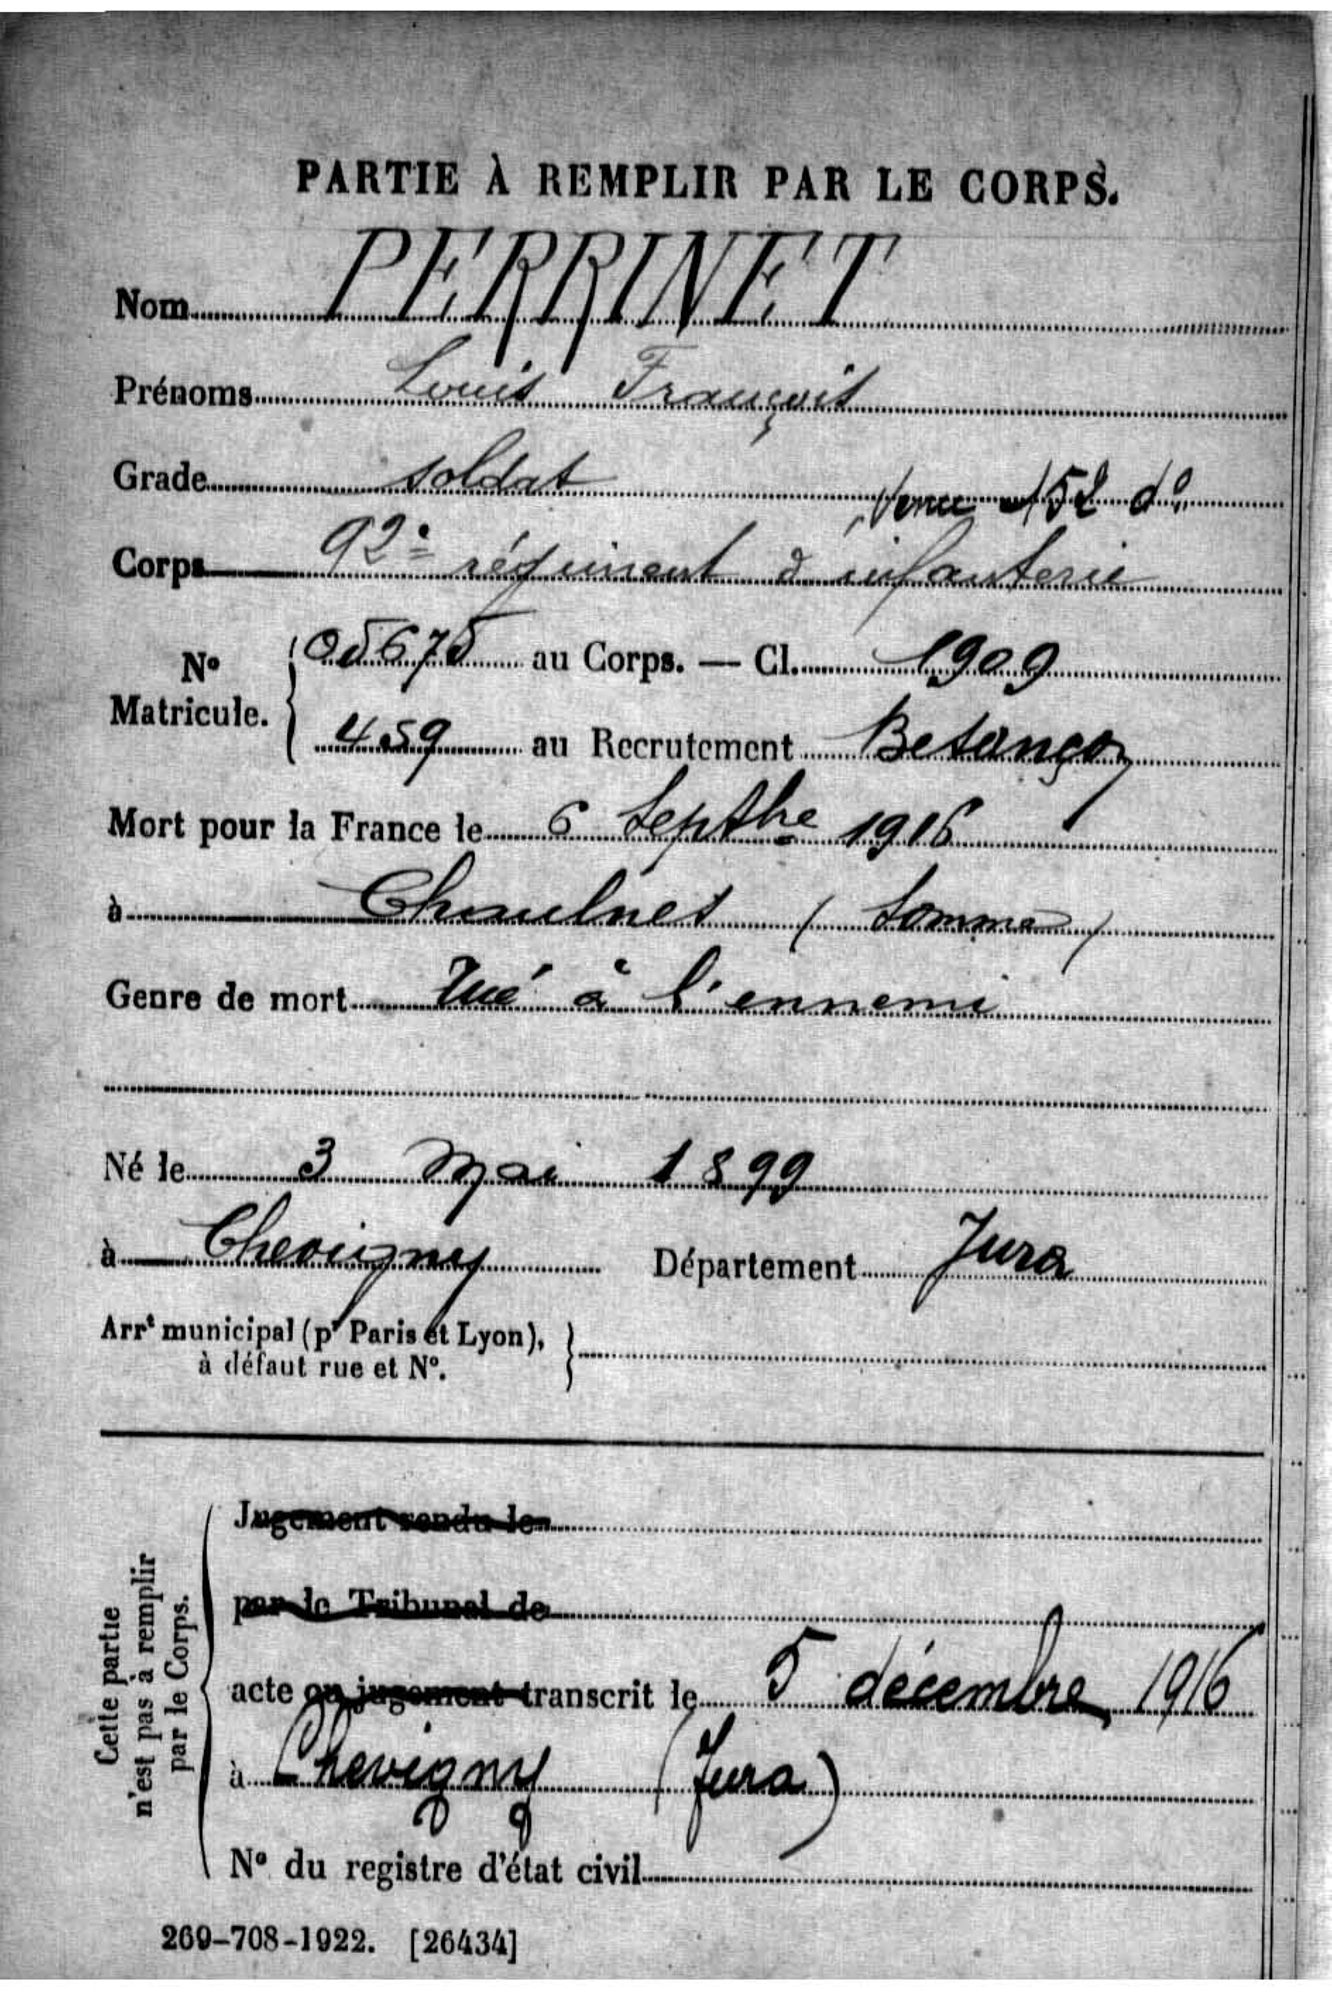 PARTIE À REMPLIR PAR LE CORPS.
Nom PERRINET
Prénoms Louis François
Grade soldat
152 d°
Corps 92e régiment d'infanterie
N° Matricule. 05675 au Corps. — Cl. 1909
459 au Recrutement Besançon
Mort pour la France le 6 Septbre 1916
à Chaulnes (Somme)
Genre de mort Tué à l'ennemi
Né le 3 Mai 1899
à Chevigny Département Jura
Arrt municipal (pr Paris et Lyon),
à défaut rue et N°.
Cette partie
n'est pas à remplir
par le Corps.
Jugement rendu le
par le Tribunal de
acte ou jugement transcrit le 5 décembre 1916
à Chevigny (Jura)
N° du registre d'état civil
269-708-1922. [26434]